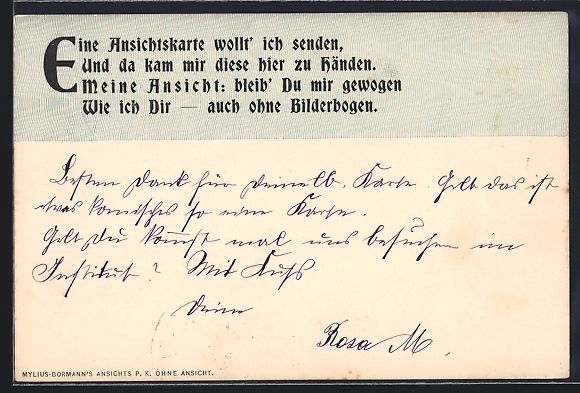 Eine Ansichtskarte wollt' ich senden,
Und da kam mir diese hier zu Händen.
Meine Ansicht: bleib' Du mir gewogen
Wie ich Dir — auch ohne Bilderbogen.
Besten Dank für Deine lb. Karte. Gelt das ist
etwas komisches so eine Karte.
Gelt Du kommst mal uns besuchen im
Institut? Mit Kuss
Deine
Rosa M.
MYLIUS-BORMANN'S ANSICHTS P. K. OHNE ANSICHT.